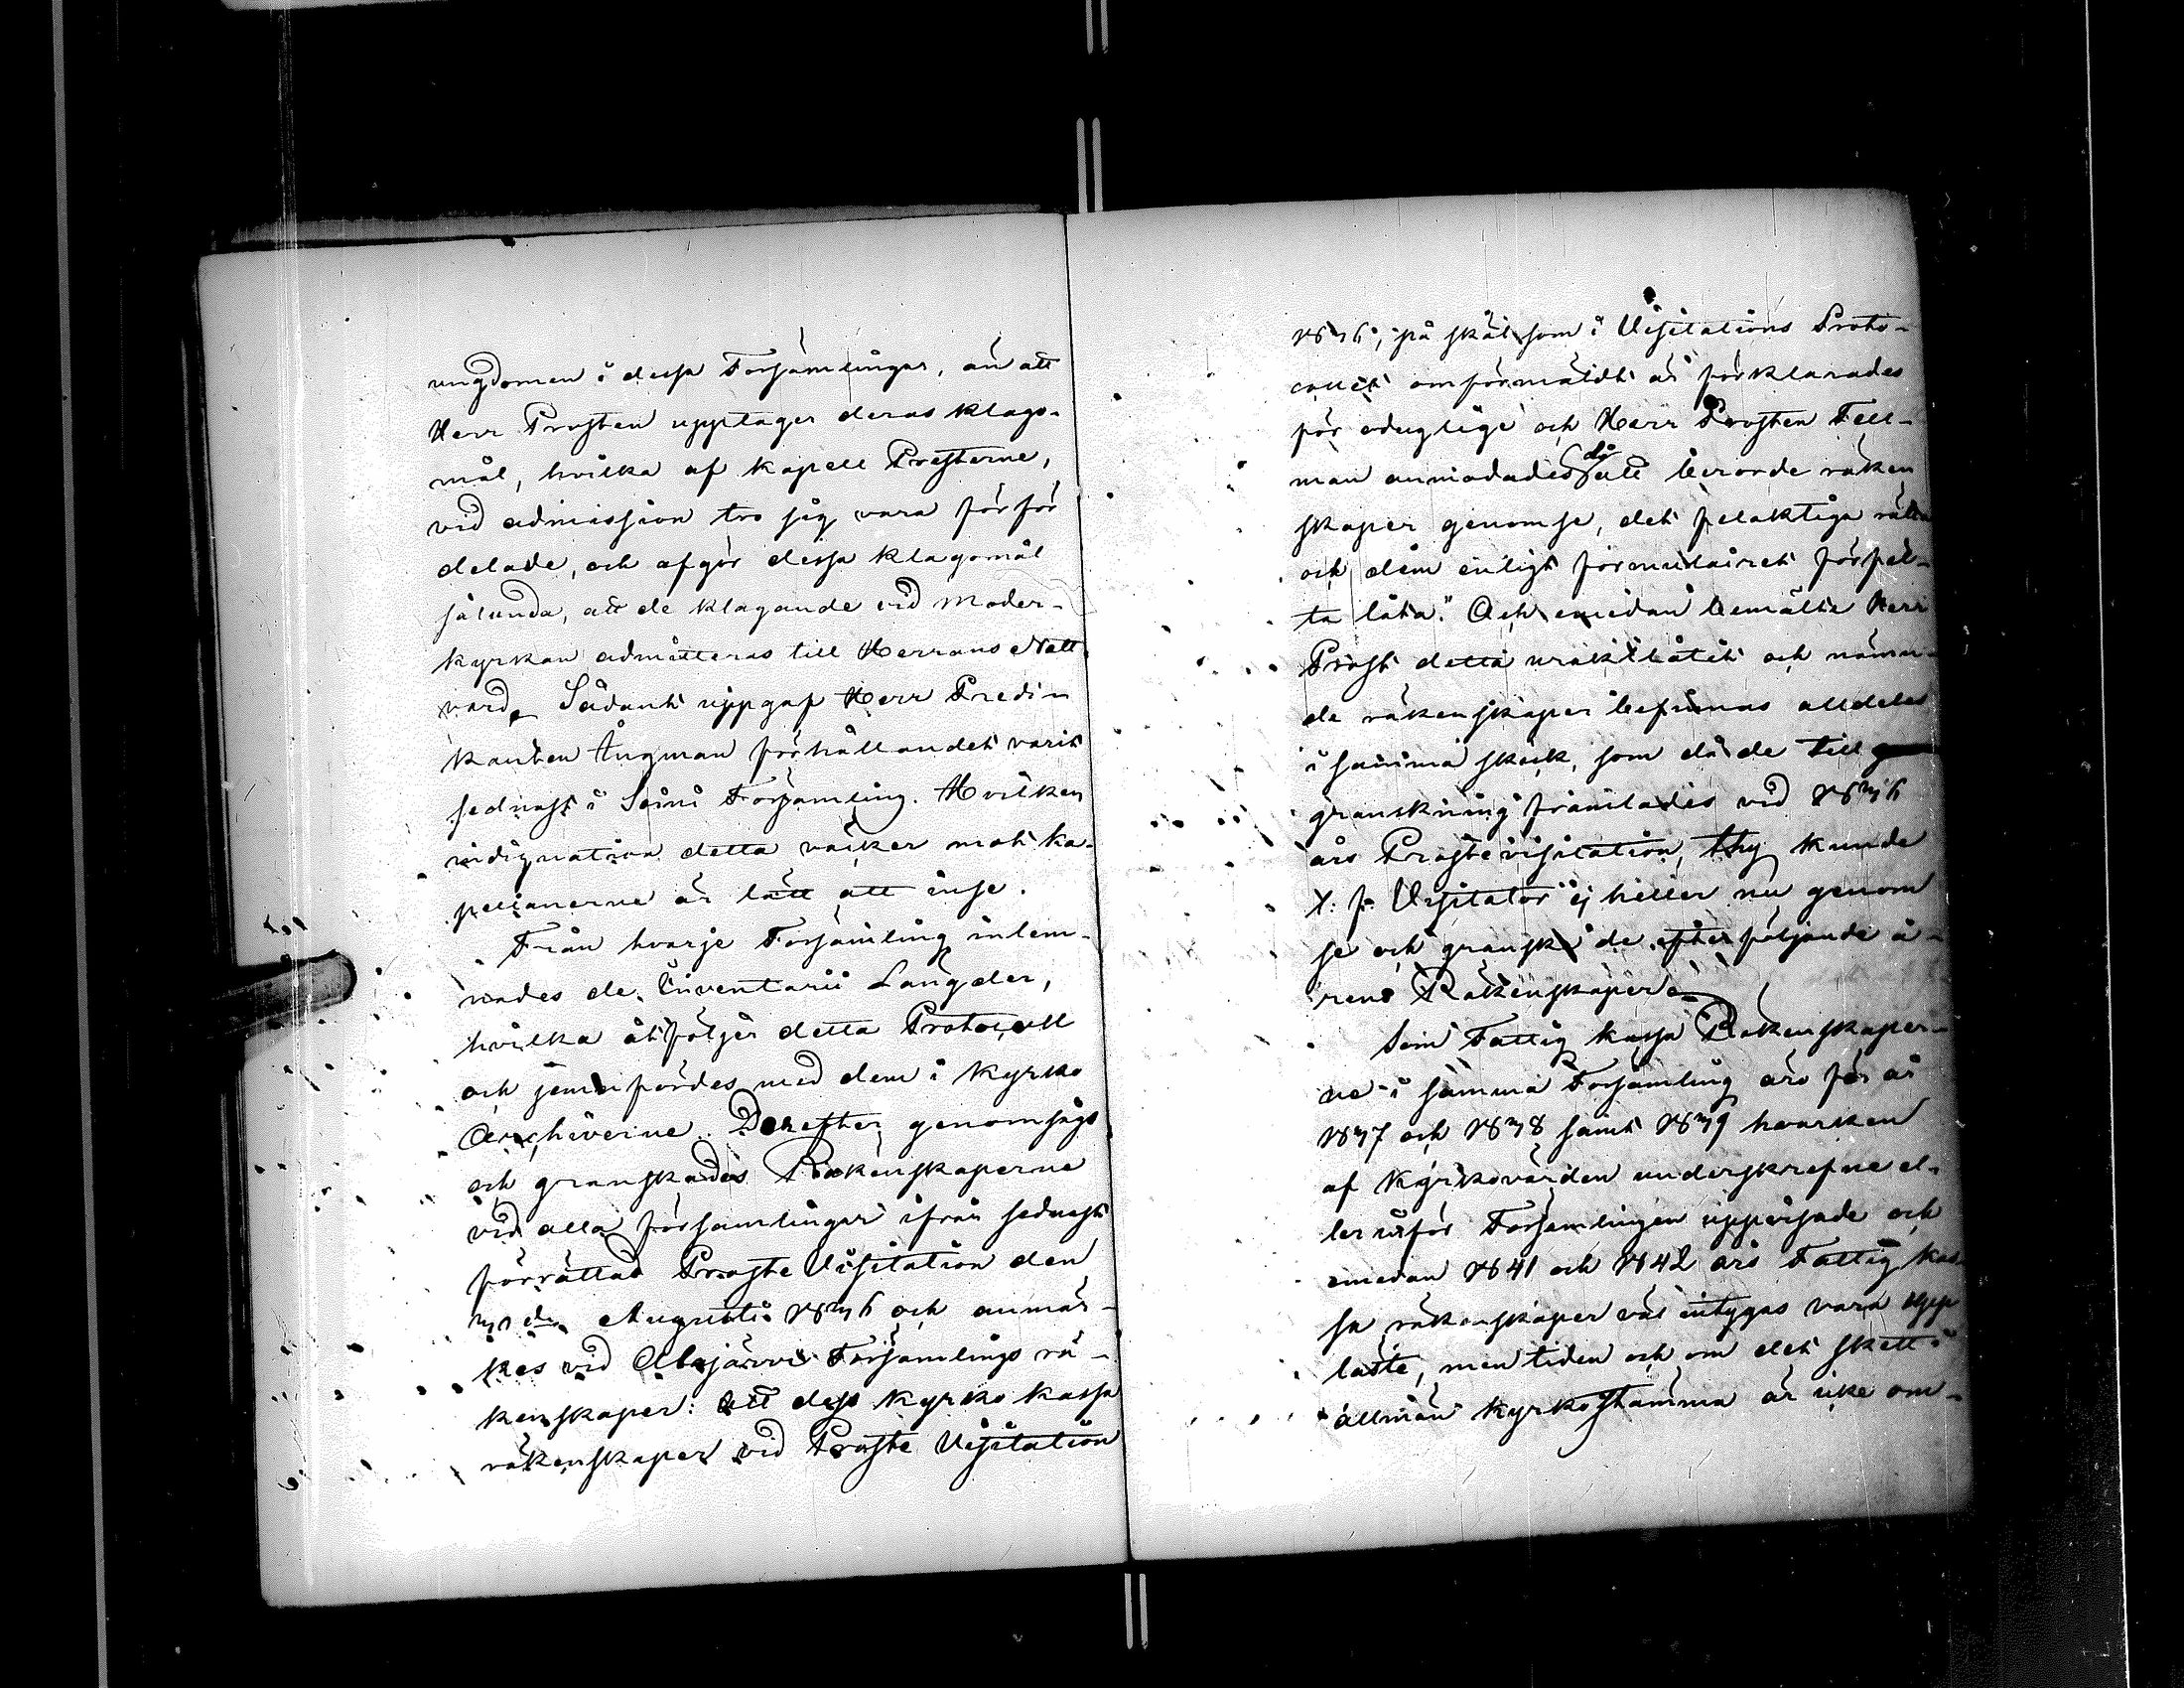 ungdomen i dessa Församlingar, än att
Herr Prosten upptager deras klago-
mål, hvilka af Kapell Presterne,
vid admission tro sig vara förför
delade, och afgör dessa klagomål
sålunda, att de klagande vid Moder-
kyrkan admitteras till Herrans Natt
vard. Sådant uppgaf Herr Predi-
kanten Ingman förhållandet varit
sednast i Soini Församling. Hvilken
indignation detta väcker mot ka-
pellanerne är lätt att inse.
Från hvarje Församling inlem-
nades de Inventarii Längder,
hvilka åtföljer detta Protocoll
och jemnfördes med dem i Kyrko
Archiverne. Derefter genomsågs
och granskades Räkenskaperne
vid alla församlingar ifrån sednast
förrättad Proste Visitation den
31 de Augusti 1836 och anmär-
kes vid Alajärvi Församlings rä-
kenskaper: att dess Kyrko kassa
räkenskaper vid Proste Visitation
1836, på skäl som i Visitations Proto-
collet omförmäldt är förklarades
för oduglige och Herr Prosten Fell-
man anmodades då att berörde räken
skaper genomse, det felaktiga rätta
och dem enligt formulairet författ-
ta låta." Och emedan bemälte Herr
Prost detta uraktlåtit och nämn-
de räkenskaper befinnas alldeles
i samma skick, som då de till
granskning framlades vid 1836
års Prostevisitation, thy kunde
t. f. Visitator ej heller nu genom
se och granska de efterföljande å-
rens Räkenskaper.
Som Fattig kassa Räkenskaper-
ne i samma Församling äro för år
1837 och 1838 samt 1839 hvarken
af Kyrkovärden underskrefne el-
ler inför Församlingen uppvisade och
emedan 1841 och 1842 års Fattig kas-
sa räkenskaper väl intygas vara upp
läste, men tiden och om det skett i
allmän Kyrkostämma är icke om-